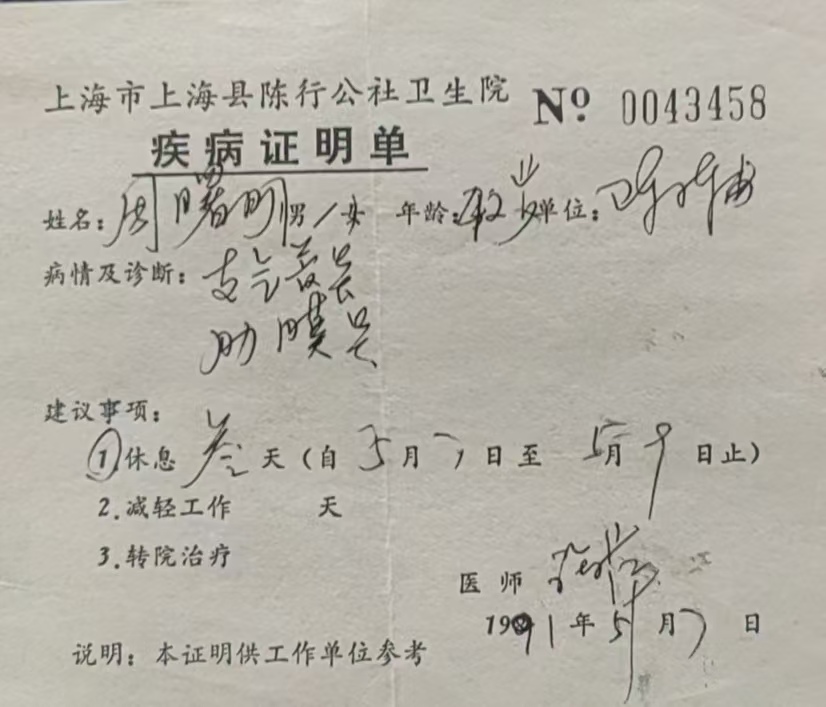 上海市上海县陈行公社卫生院 Nº 0043458
疾病证明单
姓名：周曙明 男/女 年龄： 单位：
病情及诊断：支气管炎
肋膜炎
建议事项：
1.休息 叁 天（自 5月7日至 5月9日止）
2.减轻工作 天
3.转院治疗
医师
1991年5月7日
说明：本证明供工作单位参考